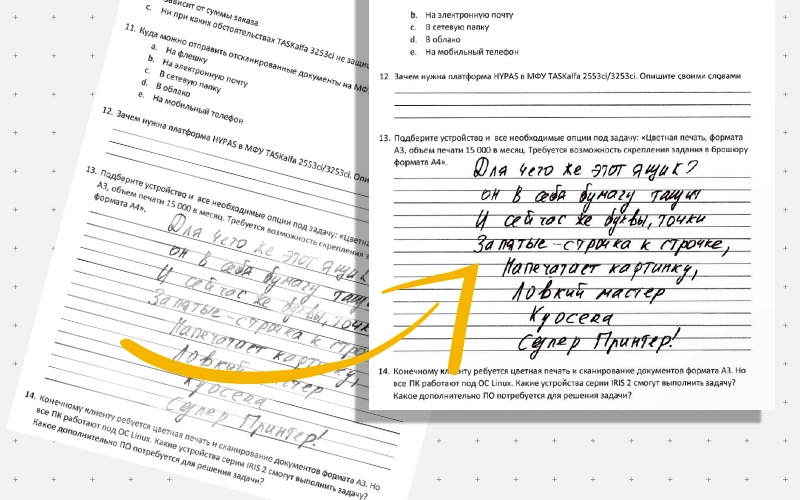 зависит от суммы заказа
c. Ни при каких обстоятельствах TASKalfa 3253ci не защи
11. Куда можно отправить отсканированные документы на МФУ
a. На флешку
b. На электронную почту
c. В сетевую папку
d. В облако
e. На мобильный телефон
12. Зачем нужна платформа HYPAS в МФУ TASKalfa 2553ci/3253ci. Опи
13. Подберите устройство и все необходимые опции под задачу: «Цветна
А3, объем печати 15 000 в месяц. Требуется возможность скрепления з
формата А4».
Для чего же этот ящик
он в себя бумагу тащит
И сейчас же буквы, точки
Запятые – строчка к строч
Напечатает картинку,
Ловкий мастер
Куосера
Супер Принтер!
14. Конечному клиенту ребуется цветная печать и сканирование документов формата А3. Но
все ПК работают под ОС Linux. Какие устройства серии IRIS 2 смогут выполнить задачу?
Какое дополнительно ПО потребуется для решения задачи?
b. На электронную почту
c. В сетевую папку
d. В облако
e. На мобильный телефон
12. Зачем нужна платформа HYPAS в МФУ TASKalfa 2553ci/3253ci. Опишите своими словами
13. Подберите устройство и все необходимые опции под задачу: «Цветная печать, формата
А3, объем печати 15 000 в месяц. Требуется возможность скрепления задания в брошюру
формата А4».
Для чего же этот ящик?
он в себя бумагу тащит
И сейчас же буквы, точки
Запятые – строчка к строчке,
Напечатает картинку,
Ловкий мастер
Куосера
Супер Принтер!
14. Конечному клиенту ребуется цветная печать и сканирование документов формата А3. Но
все ПК работают под ОС Linux. Какие устройства серии IRIS 2 смогут выполнить задачу?
Какое дополнительно ПО потребуется для решения задачи?